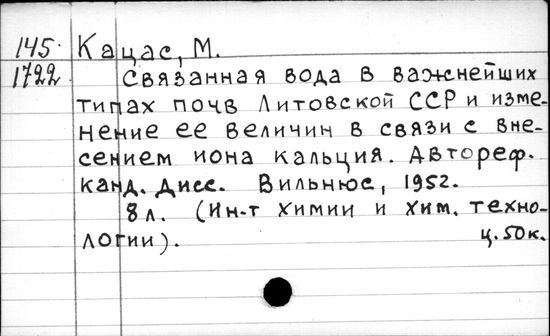 145. Кацас, М.
1722. Связанная вода в важнейших
типах почв Литовской ССР и изме-
нение ее величин в связи с вне-
сением иона кальция. Автореф.
канд. дисс. Вильнюс, 1952.
8 л. (Ин-т химии и хим. техно-
логии). ц. 50к.